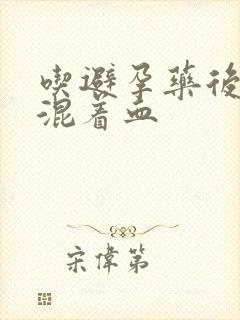 喫避孕藥後
混着血
宋偉第